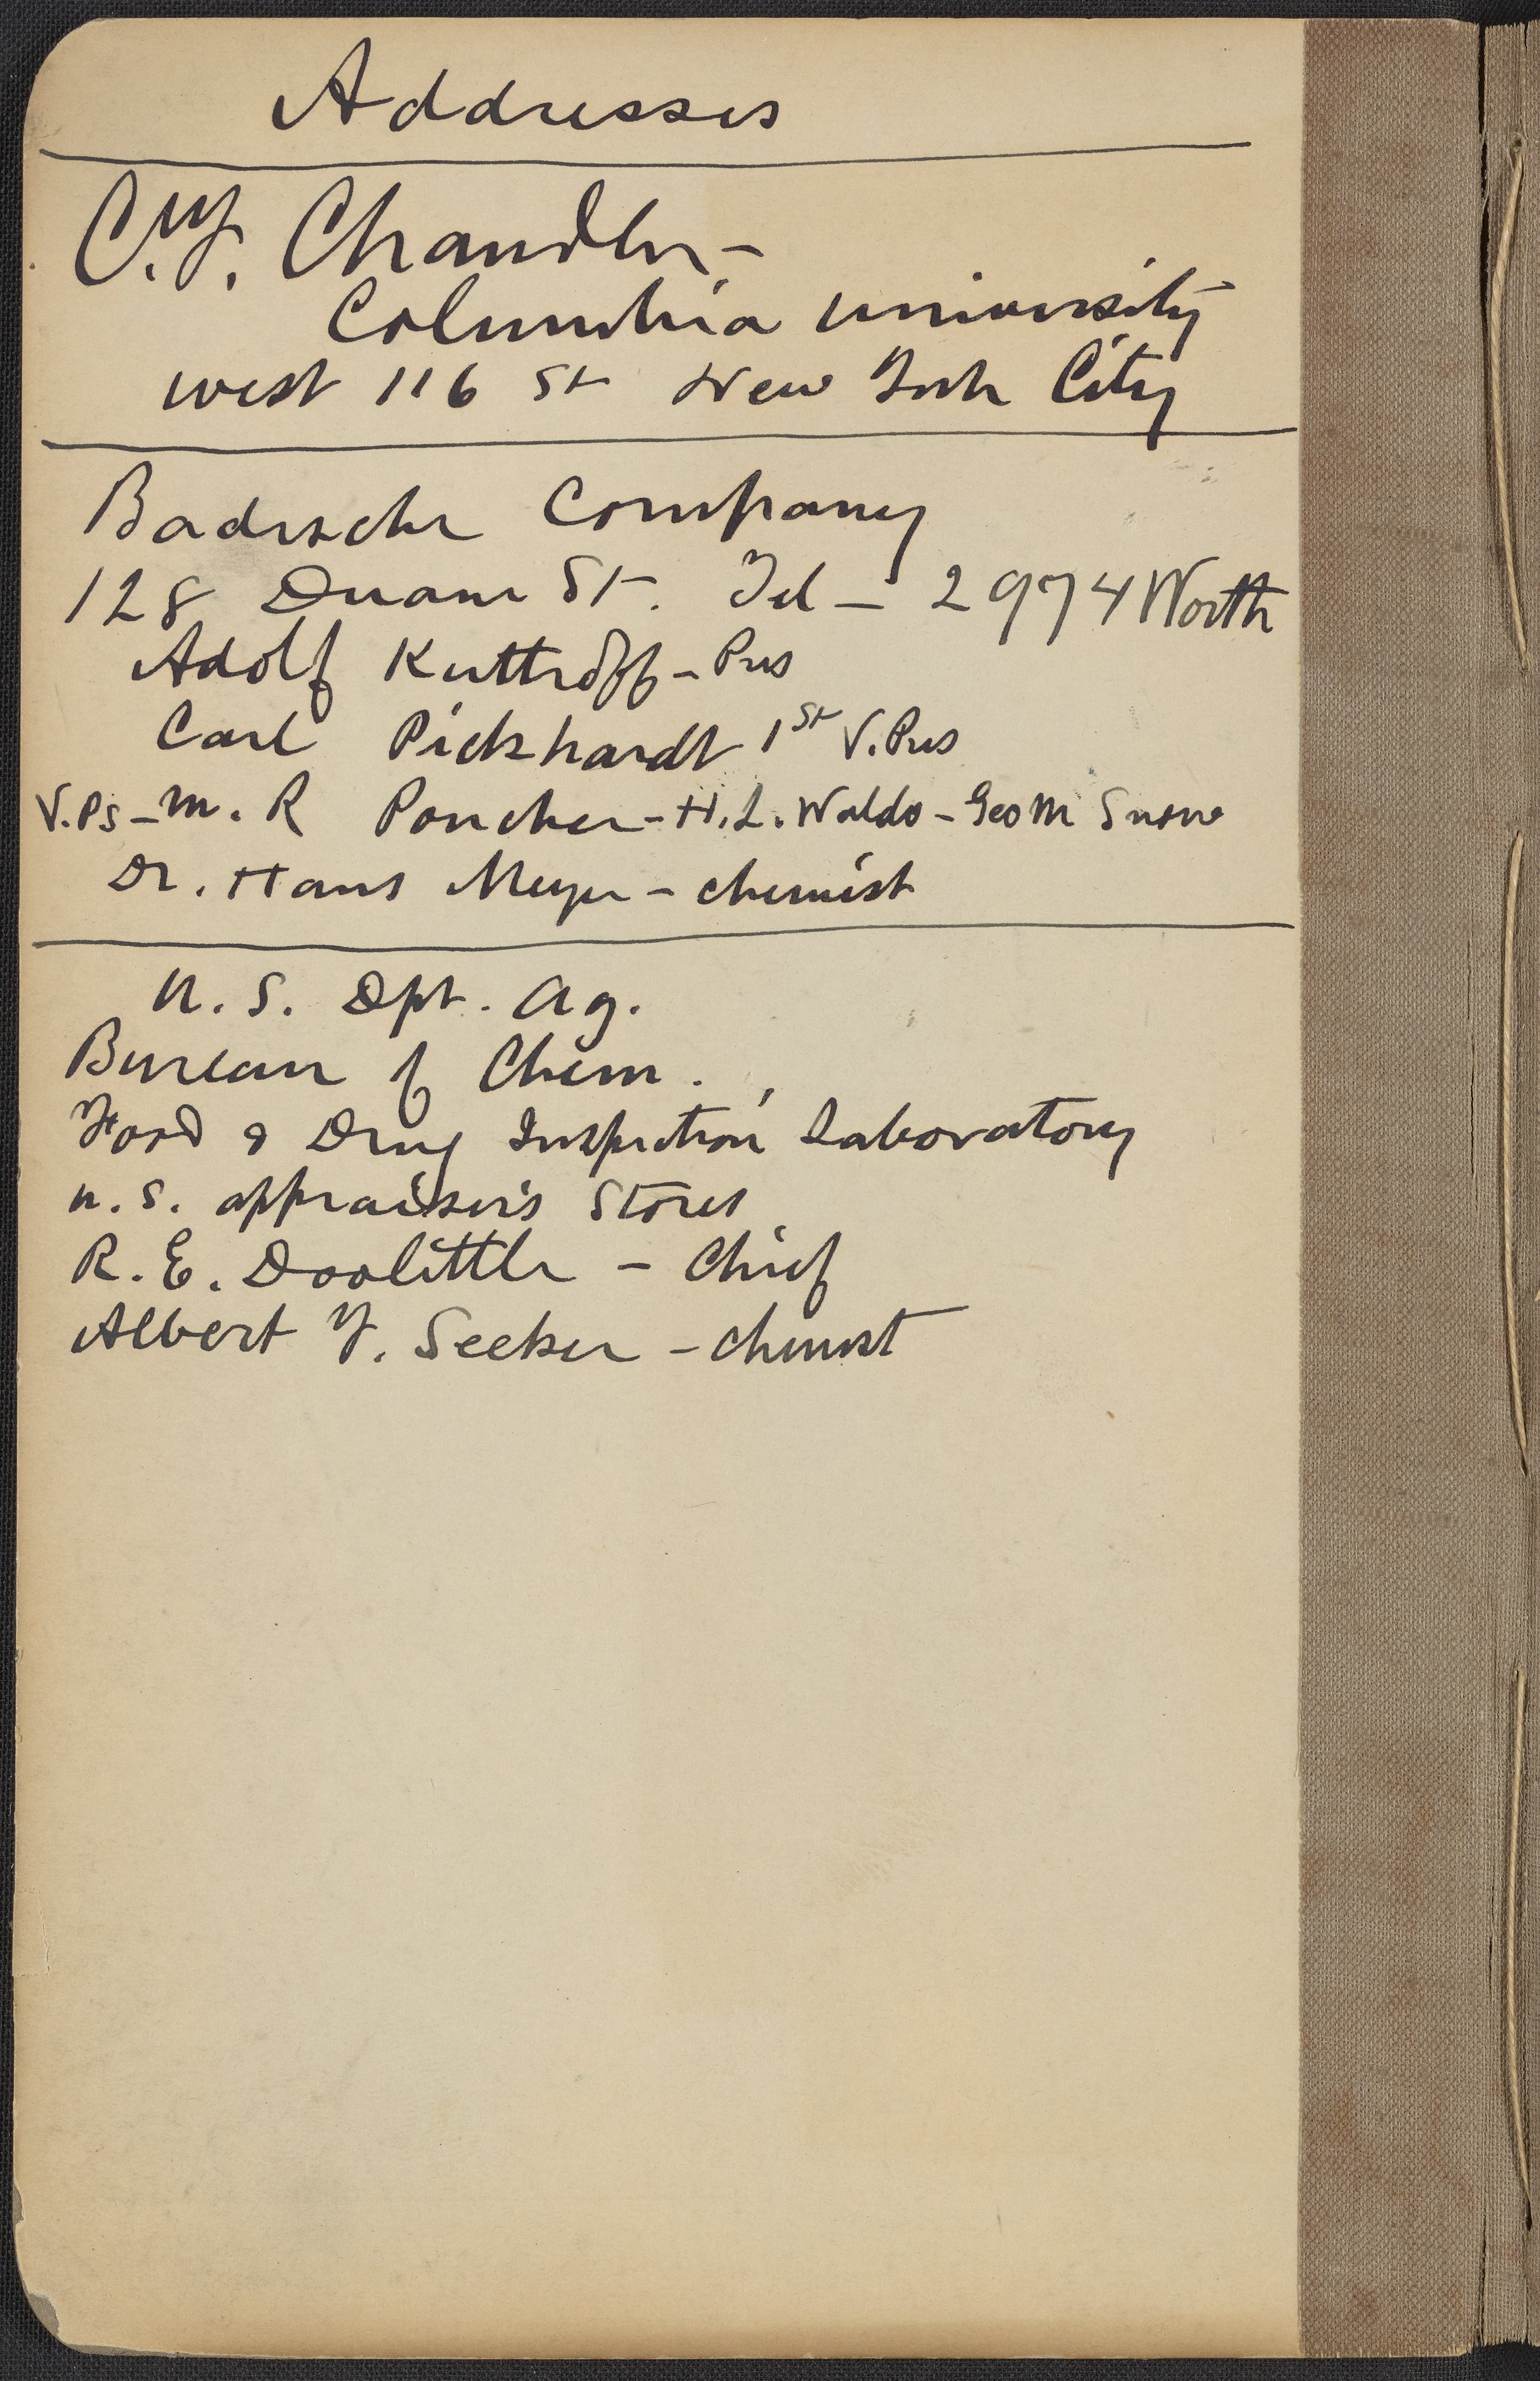 Addresses
C.F. Chandler -
Columbia University
West 116 St New York City
Badische Company
128 Duane St. Tel - 2974 Worth
Adolf Kuttroff - Pres
Carl Pickhardt 1st V. Pres
V.Ps - M. R Poucher - H.L. Waldo - Geo M Snow
Dr. Hans Meyer - chemist
U.S. Dpt. Ag.
Bureau of Chem.
Food & Drug Inspection Laboratory
U.S. appraiser's Stores
R.E. Doolittle - Chief
Albert F. Seeker - chemist